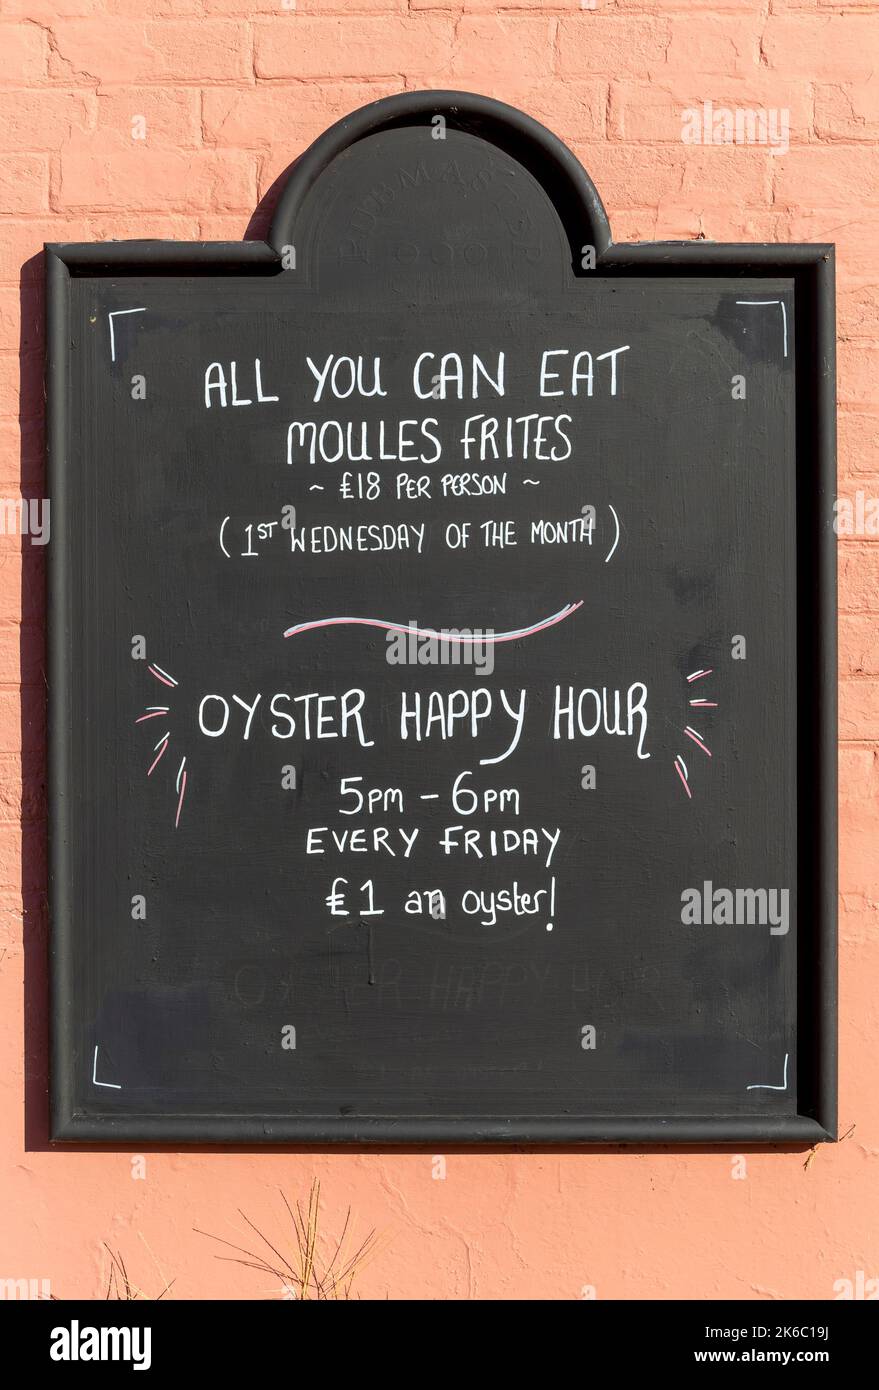 ALL YOU CAN EAT
MOULES FRITES
~ £18 PER PERSON ~
( 1ST WEDNESDAY OF THE MONTH )
OYSTER HAPPY HOUR
5PM - 6PM
EVERY FRIDAY
£1 an oyster!
alamy
alamy
alamy
Image ID: 2K6C19J
www.alamy.com